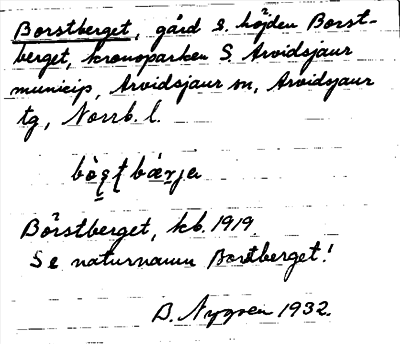 Borstberget, gård s. höjden Borst-
berget, kronoparken S. Arvidsjaur
municip, Arvidsjaur sn, Arvidsjaur
tg, Norrb. l.
Börstberget, kb. 1919.
Se naturnamn Borstberget!
B. Nygren 1932.